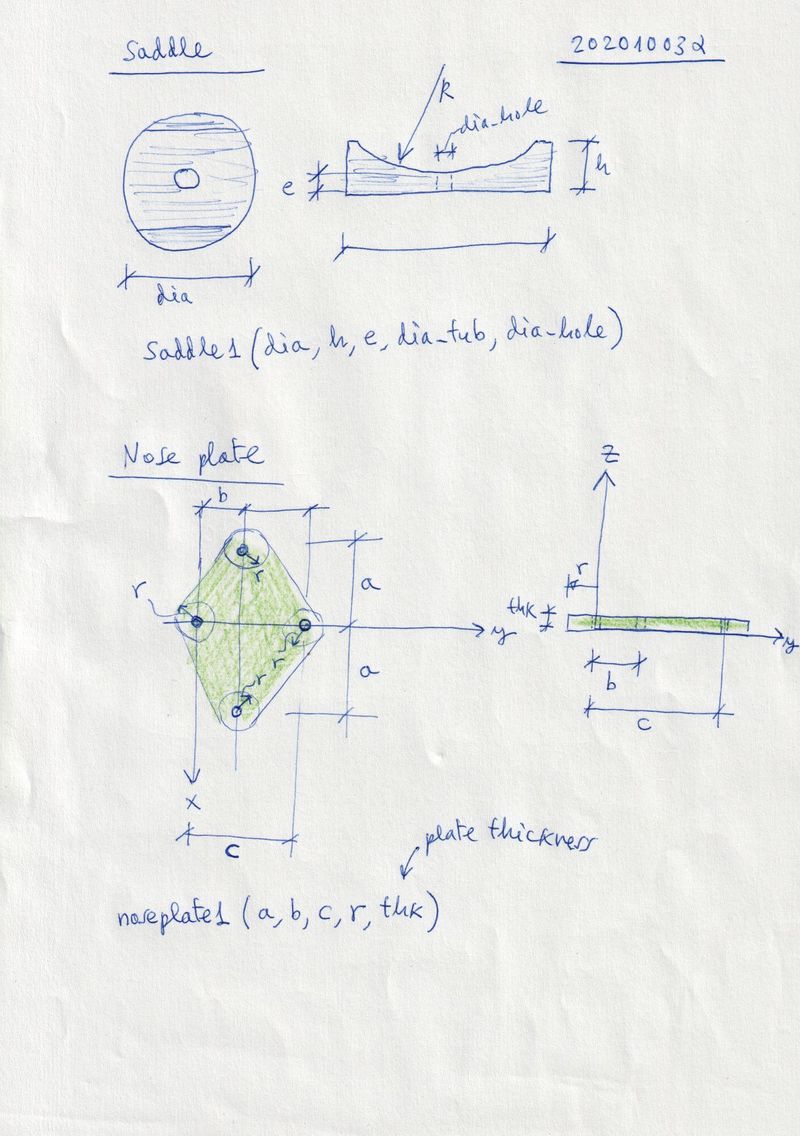 Saddle
20201003d
R
dia-hole
e
h
dia
Saddle1 (dia, h, e, dia_tub, dia-hole)
Nose plate
b
z
r
a
r
r
thk
y
y
r
r
a
b
c
x
c
plate thickness
noseplate1 (a, b, c, r, thk)